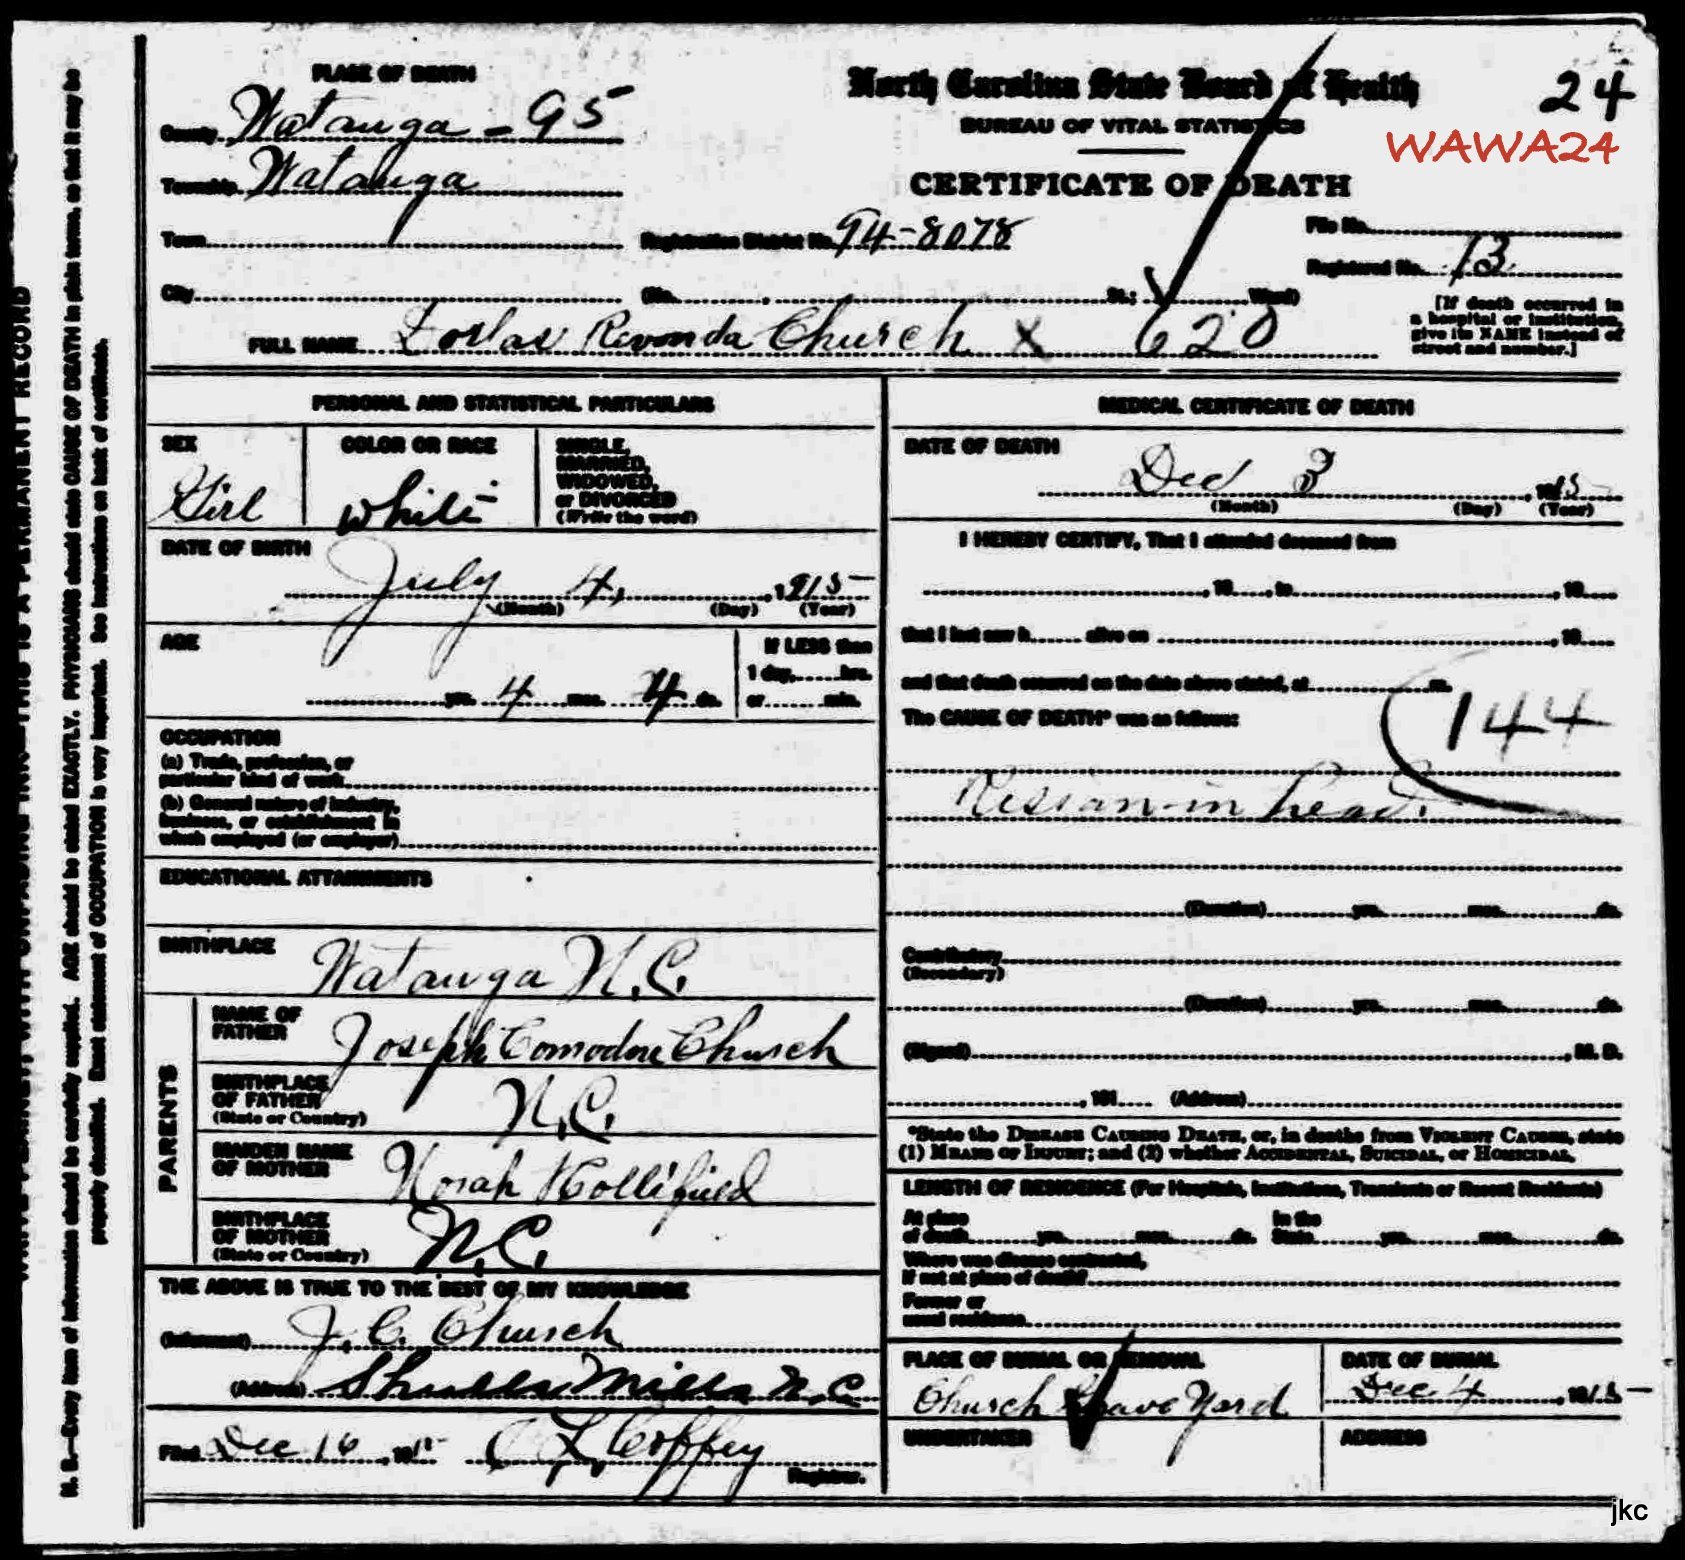 PLACE OF DEATH
County Watauga - 95
Township Watauga
Town
City
North Carolina State Board of Health
BUREAU OF VITAL STATISTICS
CERTIFICATE OF DEATH
24
WAWA24
Registration District No. 94-8078
File No.
Registered No. 13
(No. St.; Ward)
[If death occurred in a hospital or institution, give its NAME instead of street and number.]
FULL NAME Revonda Church X 620
PERSONAL AND STATISTICAL PARTICULARS
SEX
Girl
COLOR OR RACE
White
SINGLE, MARRIED, WIDOWED, or DIVORCED (Write the word)
DATE OF BIRTH
July 4, 1915
(Month) (Day) (Year)
AGE
yrs. 4 mos. 4 ds.
If LESS than 1 day, hrs. or min.
OCCUPATION
(a) Trade, profession, or particular kind of work
(b) General nature of industry, business, or establishment in which employed (or employer)
EDUCATIONAL ATTAINMENTS
BIRTHPLACE Watauga N.C.
PARENTS
NAME OF FATHER Joseph Comodore Church
BIRTHPLACE OF FATHER (State or Country) N.C.
MAIDEN NAME OF MOTHER Norah Hollifield
BIRTHPLACE OF MOTHER (State or Country) N.C.
THE ABOVE IS TRUE TO THE BEST OF MY KNOWLEDGE
(Informant) J. C. Church
(Address) Shulls Mills N.C.
Filed Dec 16, 1915 C L Coffey
Registrar.
MEDICAL CERTIFICATE OF DEATH
DATE OF DEATH
Dec 3, 1915
(Month) (Day) (Year)
I HEREBY CERTIFY, That I attended deceased from
, 19 , to , 19
that I last saw h alive on , 19
and that death occurred on the date above stated, at m.
The CAUSE OF DEATH* was as follows:
144
in head.
(Duration) yrs. mos. ds.
Contributory (Secondary)
(Duration) yrs. mos. ds.
(Signed) , M. D.
, 191 (Address)
*State the DISEASE CAUSING DEATH, or, in deaths from VIOLENT CAUSES, state
(1) MEANS OF INJURY; and (2) whether ACCIDENTAL, SUICIDAL, or HOMICIDAL.
LENGTH OF RESIDENCE (For Hospitals, Institutions, Transients or Recent Residents)
At place of death yrs. mos. ds. In the State yrs. mos. ds.
Where was disease contracted, if not at place of death?
Former or usual residence
PLACE OF BURIAL OR REMOVAL
Church Grave Yard
DATE OF BURIAL
Dec 4, 1915
UNDERTAKER
ADDRESS
N. B.—Every item of information should be carefully supplied. AGE should be stated EXACTLY. PHYSICIANS should state CAUSE OF DEATH in plain terms, so that it may be
properly classified. Exact statement of OCCUPATION is very important. See instructions on back of certificate.
THIS IS A PERMANENT RECORD
jkc